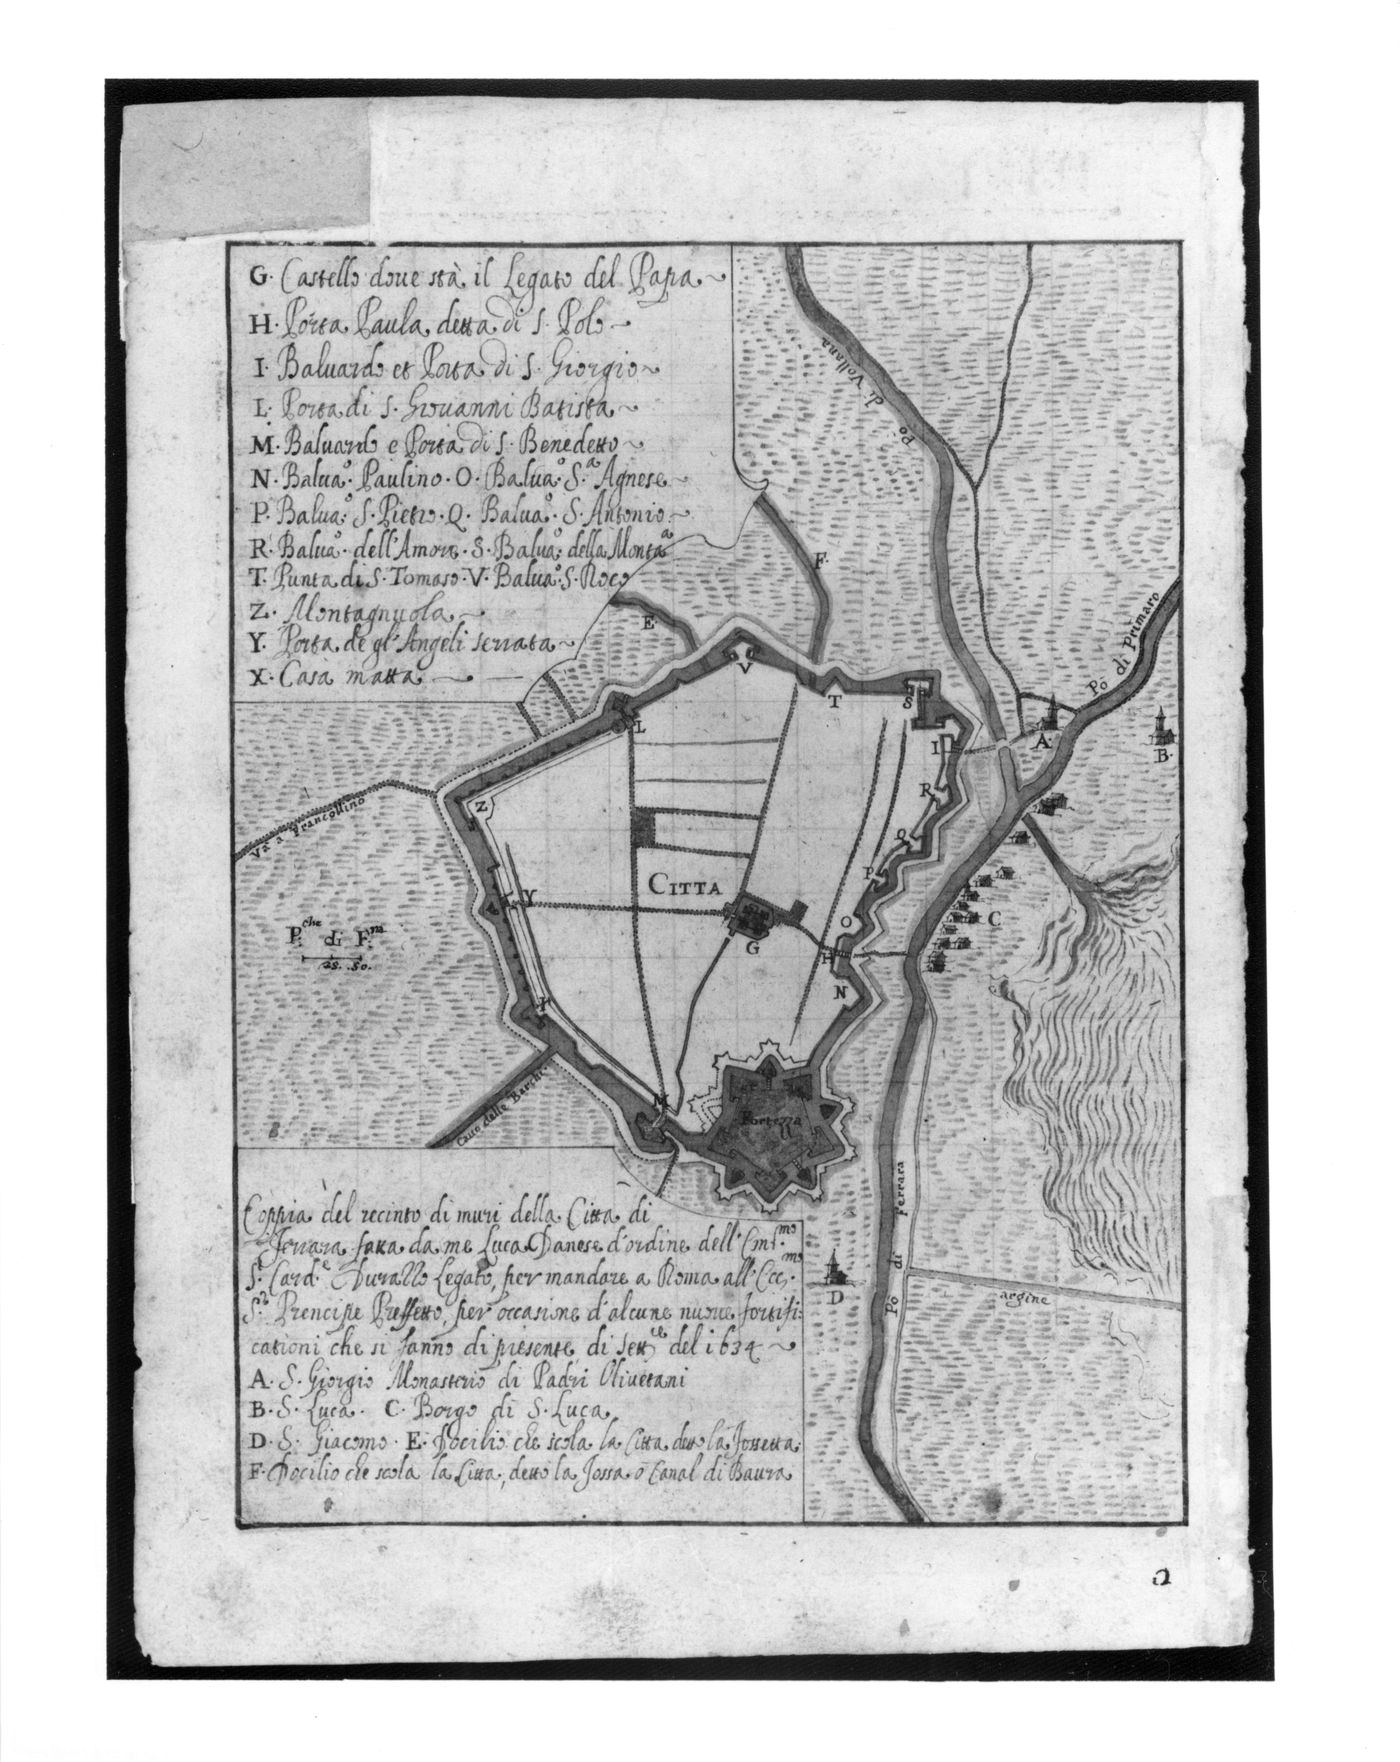 G. Castello doue stà il Legato del Papa
H. Porta Paula detta di S. Polo
I. Baluardo et Porta di S. Giorgio
L. Porta di S. Giouanni Batista
M. Baluardo e Porta di S. Benedetto
N. Baluaº. Paulino. O. Baluaº. Sª. Agnese
P. Baluaº. S. Pietro. Q. Baluaº. S. Antonio
R. Baluaº. dell'Amore. S. Baluaº. della Montaª
T. Punta di S. Tomaso. V. Baluaº. S. Roco
Z. Montagnuola
Y. Porta de gl'Angeli serrata
X. Casa matta
Pò di Vollana
F.
E
V
T
S
L
I
Pò di Primaro
A
B.
Z
R
Q
P
Va a Francollino
Y
CITTA
O
G
H
N
C
Pche di Fra
25. 50.
M
Fortezza
Cauo delle Barche
Pò di Ferrara
D
argine
Coppia del recinto di muri della Città di
Ferrara fatta da me Luca Danese d'ordine dell'Emi.mo
S.r Card.e Durazzo Legato, per mandare a Roma all'Ecc.mo
S.r Prencipe Preffetto, per occasione d'alcune nuoue fortifi:
cationi che si fanno di presente di Sett.re del 1634
A. S. Giorgio Monasterio di Padri Oliuetani
B. S. Luca. C. Borgo di S. Luca
D. S. Giacomo. E. Docilio che scola la Citta detto la Fossetta
F. Docilio che scola la Citta, detto la Fossa o Canal di Baura